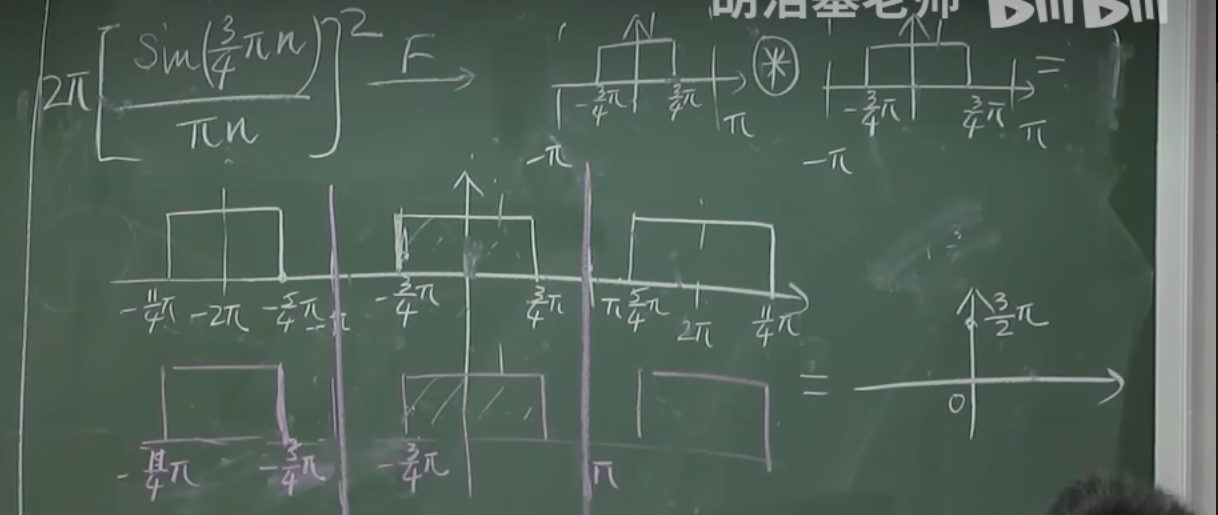 明治基老师 bilibili
2π[sin(3/4 πn)/πn]² F→ -3/4π 3/4π π ⊛ -3/4π 3/4π π =
-π -π
-11/4π -2π -5/4π -π -3/4π 3/4π π 5/4π 2π 11/4π
3/2π
= 0
-11/4π -5/4π -3/4π π